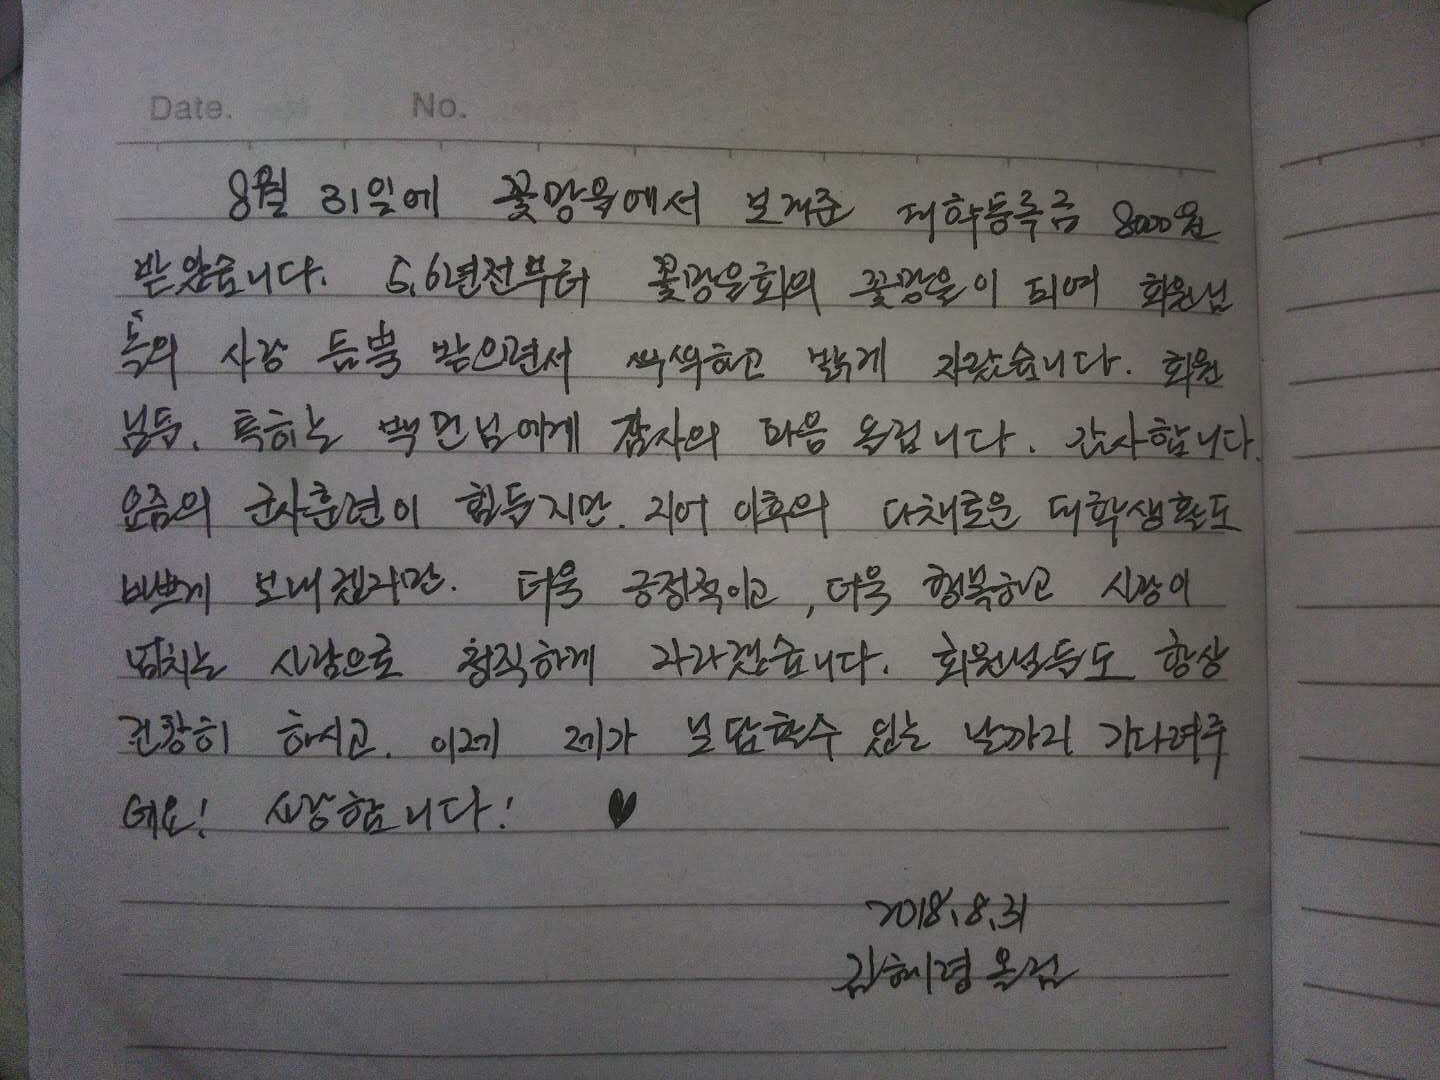 Date. No.
8월 31일에 꽃망울에서 보내준 대학등록금 8000원
받았습니다. 5,6년전부터 꽃망울회의 꽃망울이 되여 회원님
들의 사랑 듬뿍 받으면서 씩씩하고 밝게 자랐습니다. 회원
님들, 특히는 백 님에게 감사의 마음 올립니다. 감사합니다.
요즘의 군사훈련이 힘들지만, 이후의 다채로운 대학생활도
바쁘게 보내겠지만, 더욱 긍정적이고, 더욱 행복하고 사랑이
넘치는 사람으로 정직하게 자라겠습니다. 회원님들도 항상
건강히 하시고, 이제 제가 보답할수 있는 날까지 기다려주
세요! 사랑합니다! ♥
2018.8.31
김혜경 올림